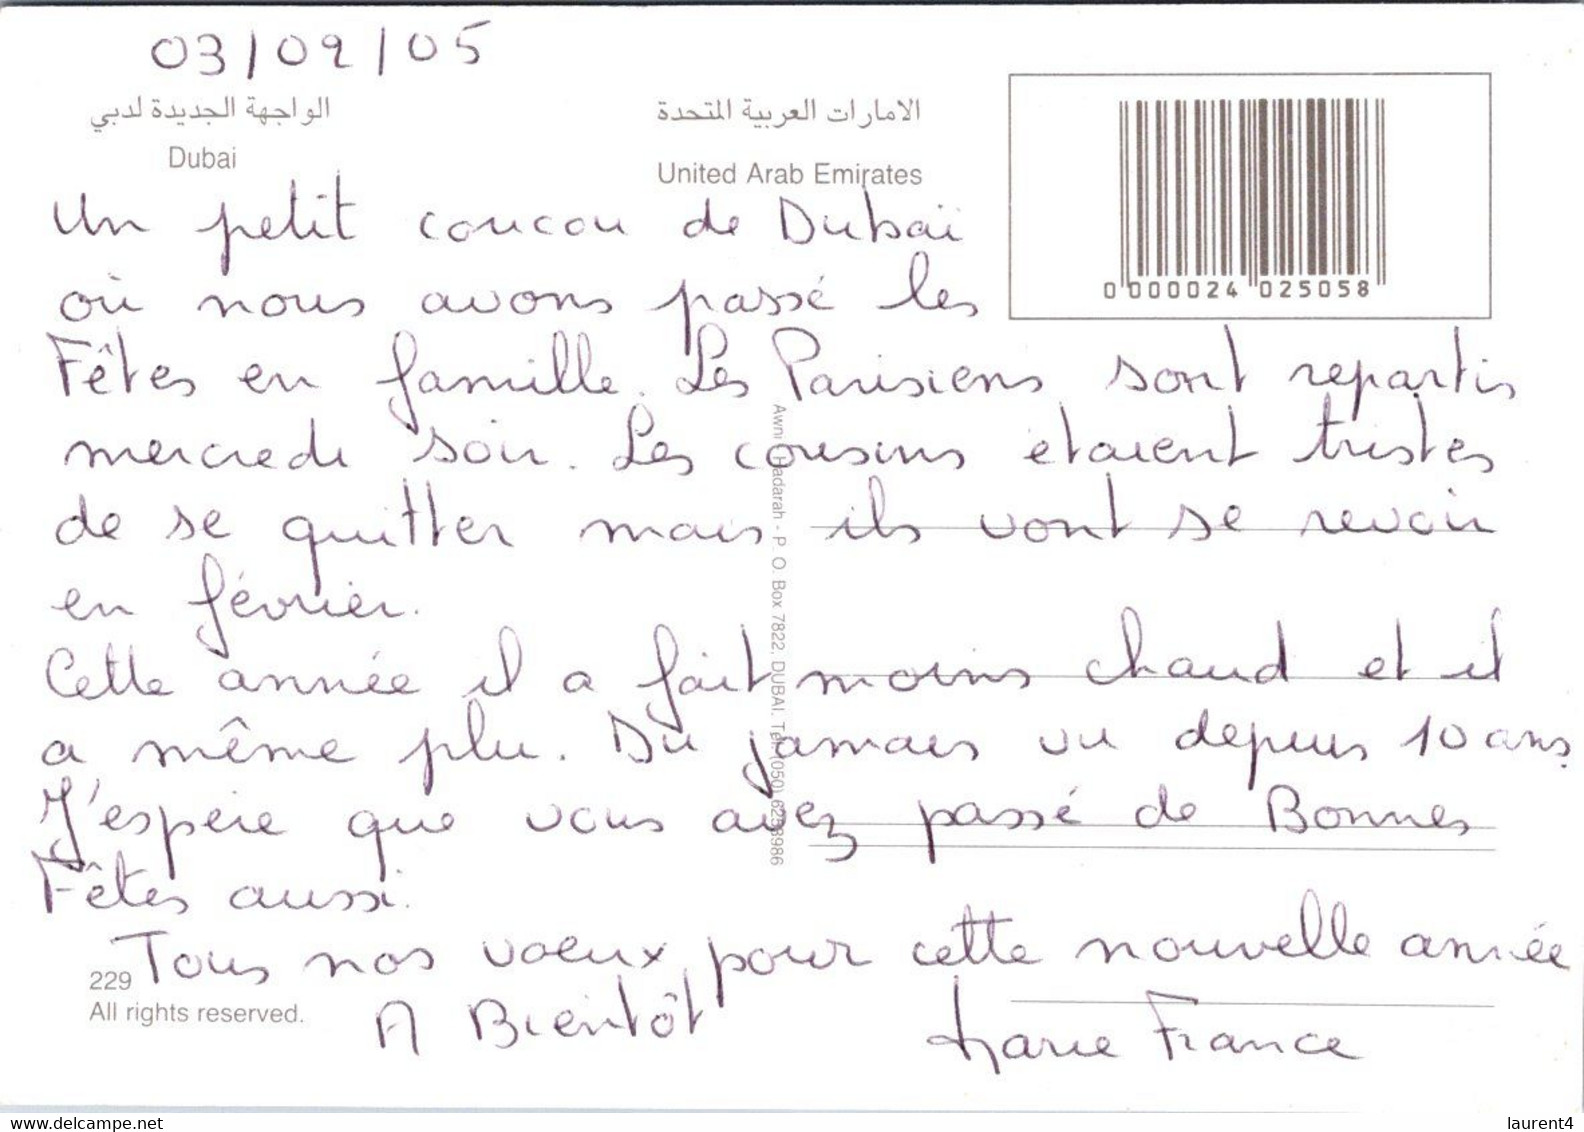 03/02/05
الواجهة الجديدة لدبي
Dubai
الامارات العربية المتحدة
United Arab Emirates
0 000024 025058
Un petit coucou de Dubaï
où nous avons passé les
Fêtes en famille. Les Parisiens sont repartis
mercredi soir. Les cousins étaient tristes
de se quitter mais ils vont se revoir
en février.
Cette année il a fait moins chaud et il
a même plu. Du jamais vu depuis 10 ans.
J'espère que vous avez passé de Bonnes
Fêtes aussi.
Tous nos voeux pour cette nouvelle année
A Bientôt
Marie France
Hadarah - P. O. Box 7822, DUBAI. Tel: (050) 6253986
229
All rights reserved.
www.delcampe.net
laurent4